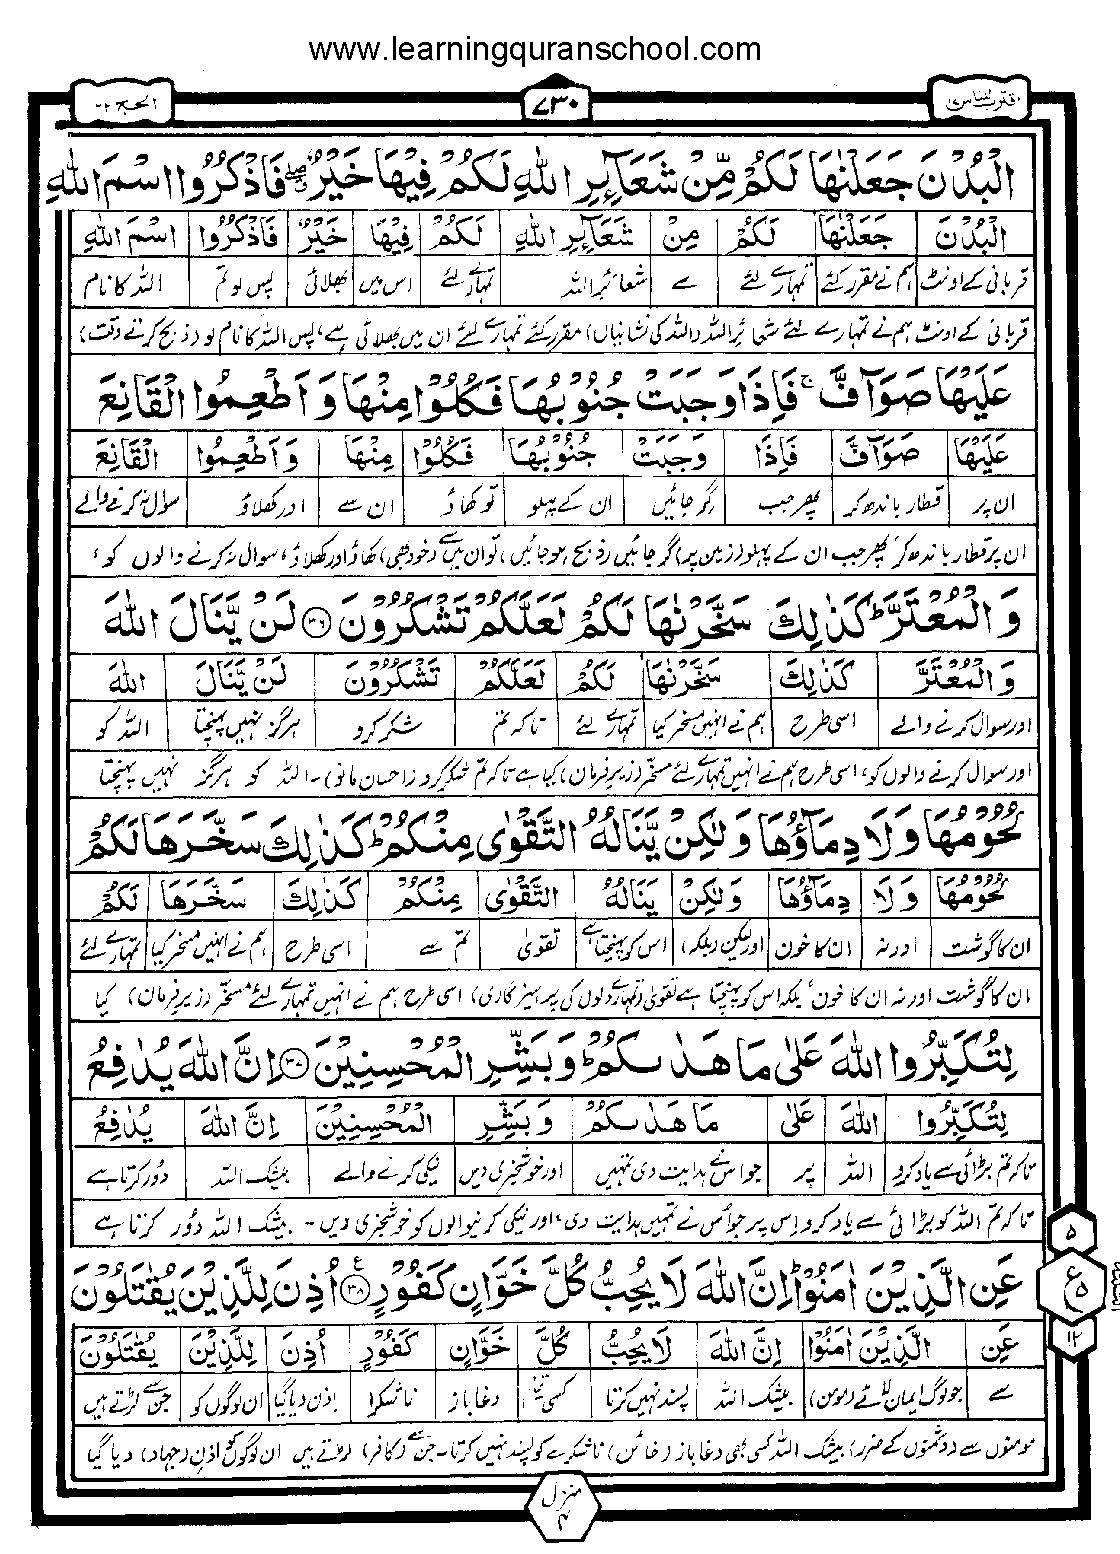 www.learningquranschool.com
اقترب للناس ۱۷
۷۳۰
الحج ۲۲
الْبُدْنَ جَعَلْنٰهَا لَكُمْ مِّنْ شَعَآئِرِ اللّٰهِ لَكُمْ فِيْهَا خَيْرٌ ۖ فَاذْكُرُوا اسْمَ اللّٰهِ
الْبُدْنَ جَعَلْنٰهَا لَكُمْ مِنْ شَعَآئِرِ اللّٰهِ لَكُمْ فِيْهَا خَيْرٌ فَاذْكُرُوا اسْمَ اللّٰهِ
قربانی کے اونٹ ہم نے مقرر کئے تمہارے لئے سے شعائر اللہ تمہارے لئے اس میں بھلائی پس لو تم اللہ کا نام
قربانی کے اونٹ ہم نے تمہارے لئے شعائر اللہ (اللہ کی نشانیاں) مقرر کئے تمہارے لئے ان میں بھلائی ہے، پس اللہ کا نام لو (ذبح کرتے وقت)
عَلَيْهَا صَوَآفَّ ۚ فَاِذَا وَجَبَتْ جُنُوْبُهَا فَكُلُوْا مِنْهَا وَاَطْعِمُوا الْقَانِعَ
عَلَيْهَا صَوَآفَّ فَاِذَا وَجَبَتْ جُنُوْبُهَا فَكُلُوْا مِنْهَا وَاَطْعِمُوا الْقَانِعَ
ان پر قطار باندھ کر پھر جب گر جائیں ان کے پہلو تو کھاؤ ان سے اور کھلاؤ سوال نہ کرنے والے
ان پر قطار باندھ کر، پھر جب ان کے پہلو (زمین پر) گر جائیں (ذبح ہو جائیں) تو ان میں سے (خود بھی) کھاؤ اور کھلاؤ، سوال نہ کرنے والوں کو،
وَالْمُعْتَرَّ ؕ كَذٰلِكَ سَخَّرْنٰهَا لَكُمْ لَعَلَّكُمْ تَشْكُرُوْنَ ۳۶ لَنْ يَّنَالَ اللّٰهَ
وَالْمُعْتَرَّ كَذٰلِكَ سَخَّرْنٰهَا لَكُمْ لَعَلَّكُمْ تَشْكُرُوْنَ لَنْ يَّنَالَ اللّٰهَ
اور سوال کرنے والے اسی طرح ہم نے انہیں مسخر کیا تمہارے لئے تاکہ تم شکر کرو ہرگز نہیں پہنچتا اللہ کو
اور سوال کرنے والوں کو، اسی طرح ہم نے انہیں تمہارے لئے مسخر (زیرِ فرمان) کیا ہے تاکہ تم شکر کرو (احسان مانو)۔ اللہ کو ہرگز نہیں پہنچتا
لُحُوْمُهَا وَلَا دِمَآؤُهَا وَلٰكِنْ يَّنَالُهُ التَّقْوٰى مِنْكُمْ ؕ كَذٰلِكَ سَخَّرَهَا لَكُمْ
لُحُوْمُهَا وَلَا دِمَآؤُهَا وَلٰكِنْ يَّنَالُهُ التَّقْوٰى مِنْكُمْ كَذٰلِكَ سَخَّرَهَا لَكُمْ
ان کا گوشت اور نہ ان کا خون اور لیکن (بلکہ) اس کو پہنچتا ہے تقویٰ تم سے اسی طرح ہم نے انہیں مسخر کیا تمہارے لئے
ان کا گوشت اور نہ ان کا خون، بلکہ اس کو پہنچتا ہے تقویٰ (تمہارے دلوں کی پرہیزگاری) اسی طرح ہم نے انہیں تمہارے لئے مسخر (زیرِ فرمان) کیا
لِتُكَبِّرُوا اللّٰهَ عَلٰى مَا هَدٰىكُمْ ؕ وَبَشِّرِ الْمُحْسِنِيْنَ ۳۷ اِنَّ اللّٰهَ يُدٰفِعُ
لِتُكَبِّرُوا اللّٰهَ عَلٰى مَا هَدٰىكُمْ وَبَشِّرِ الْمُحْسِنِيْنَ اِنَّ اللّٰهَ يُدٰفِعُ
تاکہ تم بڑائی سے یاد کرو اللہ پر جو اس نے ہدایت دی تمہیں اور خوشخبری دیں نیکی کرنے والے بیشک اللہ دور کرتا ہے
تاکہ تم اللہ کو بڑائی سے یاد کرو اس پر جو اس نے تمہیں ہدایت دی، اور نیکی کرنیوالوں کو خوشخبری دیں۔ بیشک اللہ دُور کرتا ہے
عَنِ الَّذِيْنَ اٰمَنُوْا ؕ اِنَّ اللّٰهَ لَا يُحِبُّ كُلَّ خَوَّانٍ كَفُوْرٍ ۳۸ اُذِنَ لِلَّذِيْنَ يُقٰتَلُوْنَ
عَنِ الَّذِيْنَ اٰمَنُوْا اِنَّ اللّٰهَ لَا يُحِبُّ كُلَّ خَوَّانٍ كَفُوْرٍ اُذِنَ لِلَّذِيْنَ يُقٰتَلُوْنَ
سے جو لوگ ایمان لائے (مومن) بیشک اللہ پسند نہیں کرتا کسی دغاباز ناشکرا اذن دیا گیا ان لوگوں کو جن سے لڑتے ہیں
مومنوں سے (دشمنوں کے ضرر) بیشک اللہ کسی بھی دغاباز (خائن) ناشکرے کو پسند نہیں کرتا۔ جن سے (کافر) لڑتے ہیں ان لوگوں کو اذن (جہاد) دیا گیا
۵
ع
۵
۱۲
منزل ۴